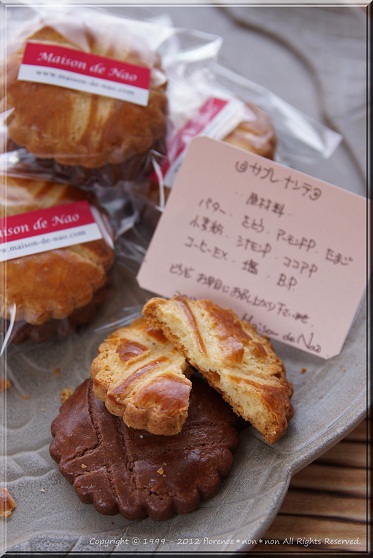 Maison de Nao
www.maison-de-nao.com
Maison de Nao
www.maison-de-nao.com
サブレ ナンテ
原材料
バター さとう アーモンドP たまご
小麦粉 ココアP
コーヒーEX 塩 B.P
Maison de Nao
Copyright © 1999 - 2012 florence*non*non All Rights Reserved.